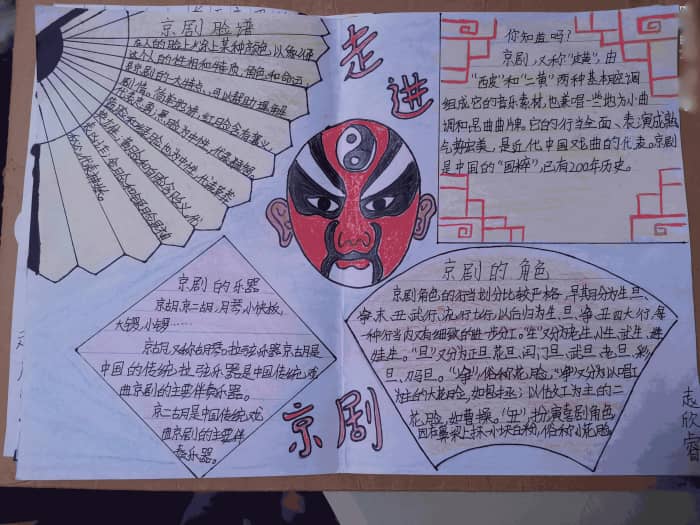 京剧脸谱
在人的脸上涂上某种颜色,以象征
这个人的性格和特质,角色和命运
是京剧的一大特点,可以帮助理解
剧情。简单地讲,红脸含有褒义,
代表忠勇;黑脸为中性,代表猛智
走
进
你知道吗?
京剧,又称“皮黄”,由
“西皮”和“二黄”两种基本腔调
组成它的音乐素材,也兼唱一些地方小曲
调和昆曲曲牌。它的行当全面、表演成熟
气势宏美,是近代中国戏曲的代表。京剧
是中国的“国粹”,已有200年历史。
京剧的乐器
京胡,京二胡,月琴,小快板,
大锣,小锣……
京胡,又称胡琴,拉弦乐器京胡是
中国的传统拉弦乐器是中国传统戏
曲京剧的主要伴奏乐器。
京二胡是中国传统戏
曲京剧的主要伴
奏乐器。
京剧
京剧的角色
京剧角色的行当划分比较严格,早期分为生、旦、
净、末、丑、武行、流行七行,以后归为生、旦、净、丑四大行,每
一种行当内又有细致的进一步分工。“生”又分为老生、小生、武生、
娃娃生。“旦”又分为正旦、花旦、闺门旦、武旦、老旦、彩
旦、刀马旦。“净”,俗称花脸,“净”又分为以唱工
为主的大花脸,如包拯;以做工为主的二
花脸,如曹操。“丑”,扮演喜剧角色,
因在鼻梁上抹一小块白粉,俗称小花脸。
赵欣睿